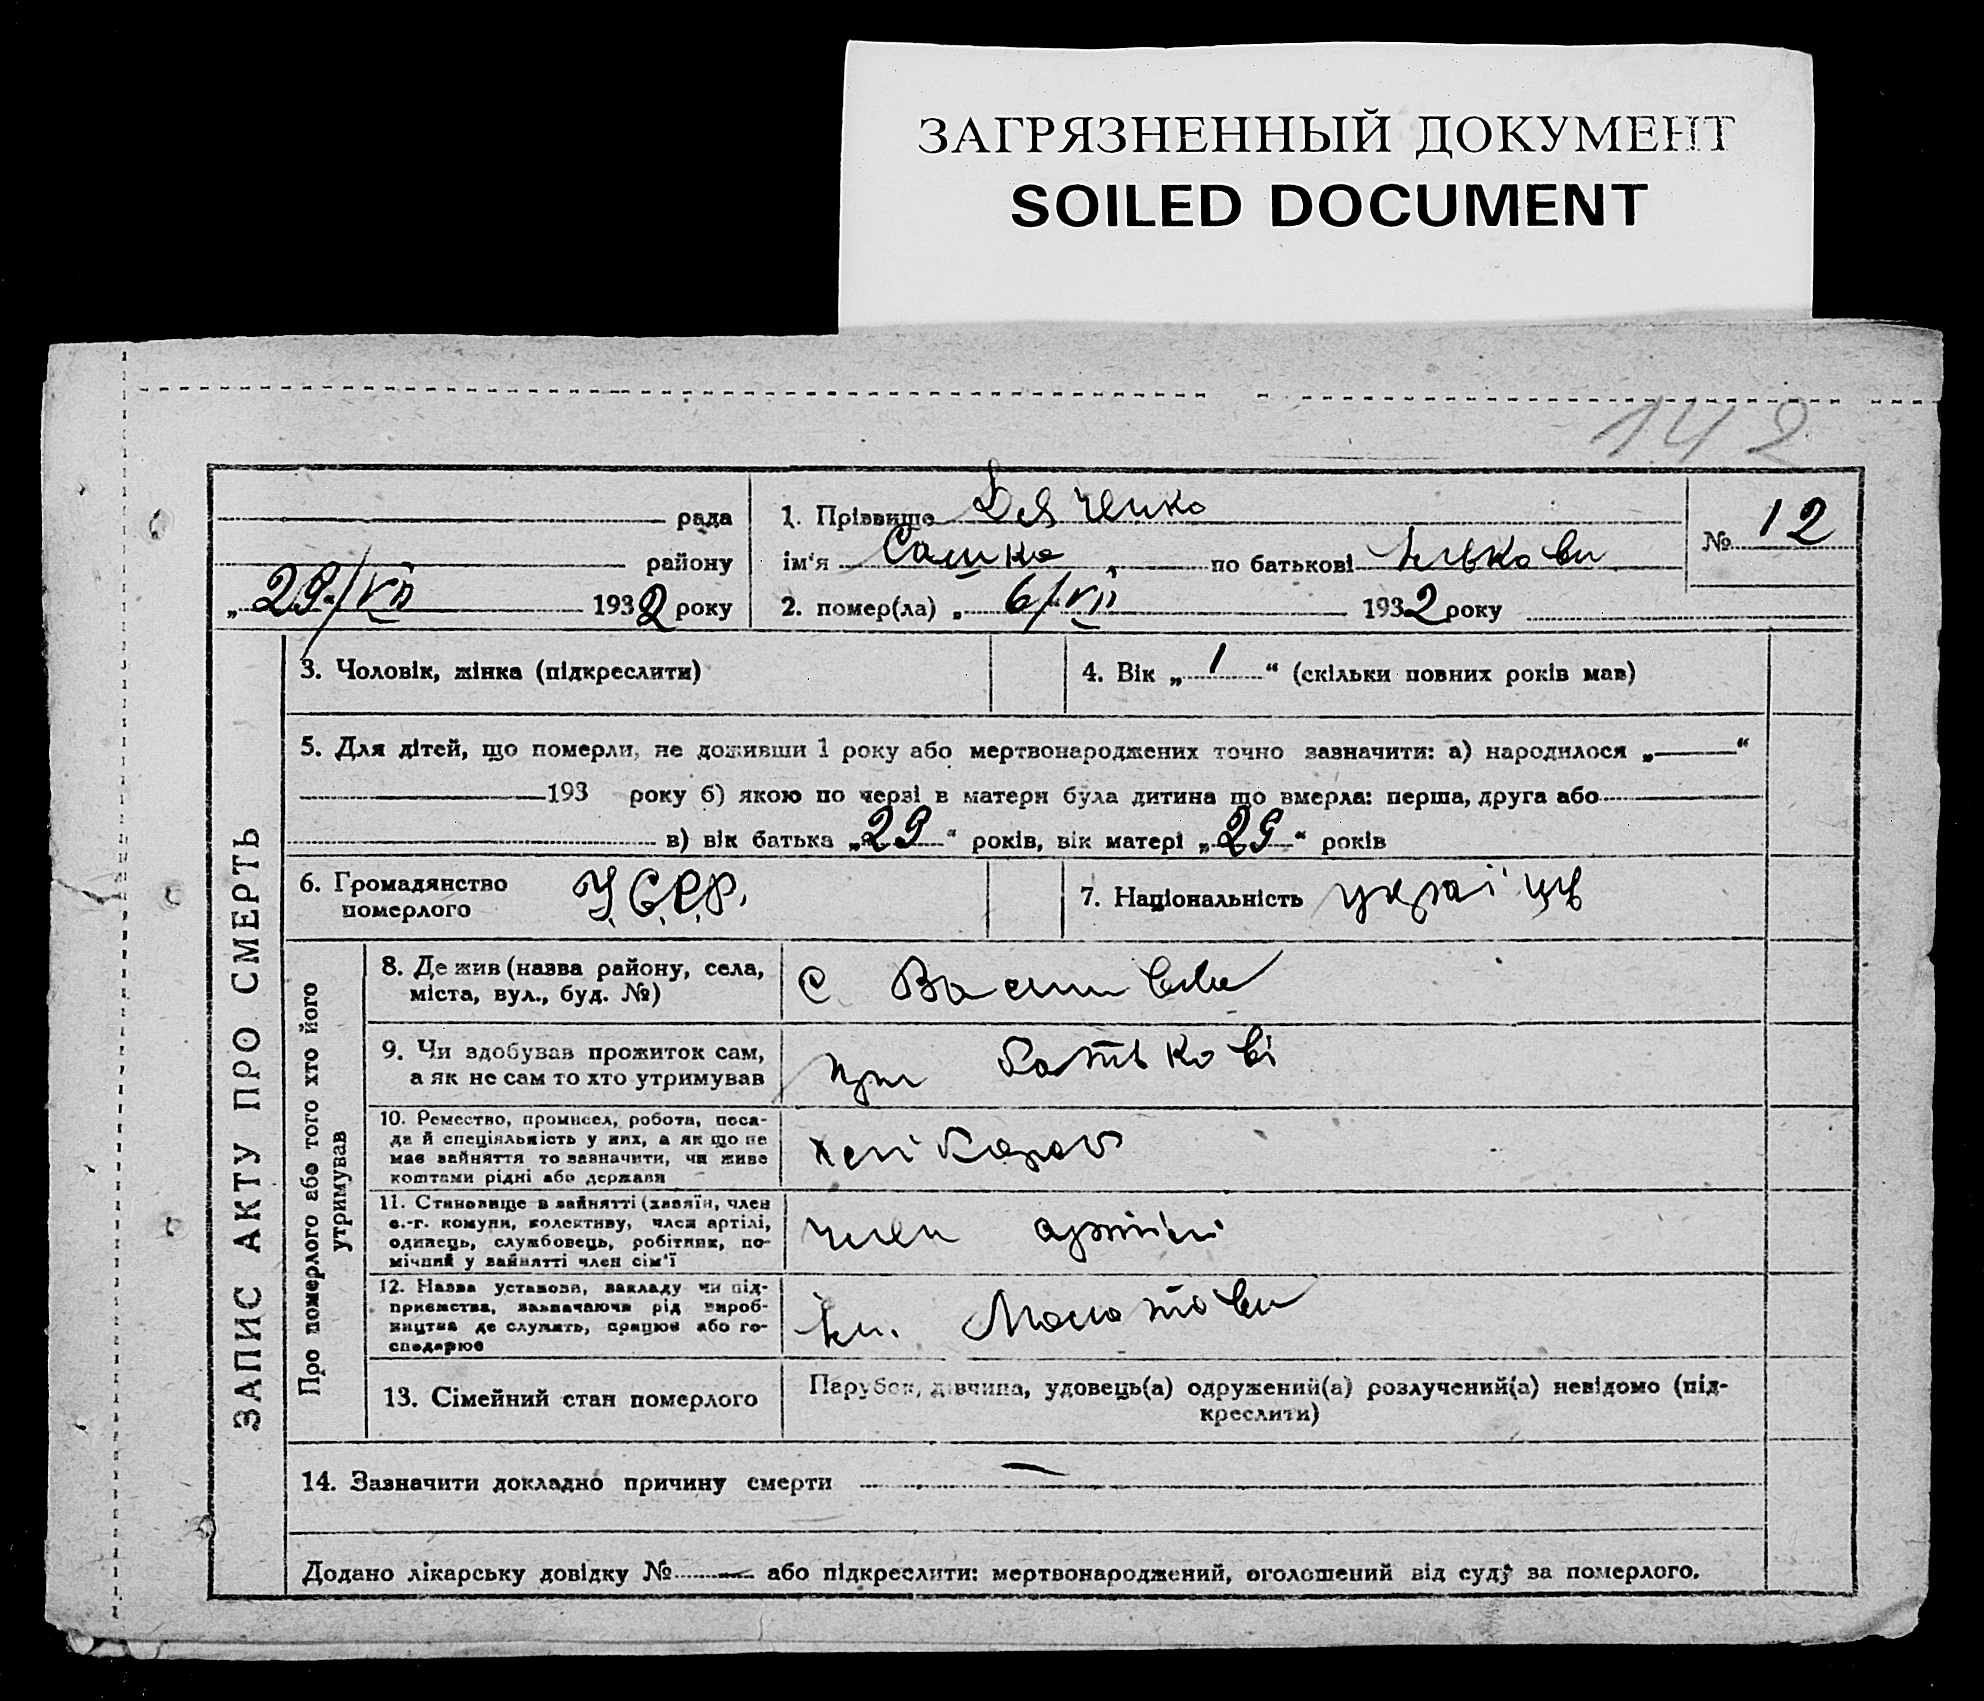 ЗАГРЯЗНЕННЫЙ ДОКУМЕНТ
SOILED DOCUMENT
142
рада
району
„29/VII 1932 року
1. Прізвище Дяченко
ім'я Сашко по батькові
2. помер(ла) „6/VII 1932 року
№ 12
ЗАПИС АКТУ ПРО СМЕРТЬ
3. Чоловік, жінка (підкреслити)
4. Вік „1“ (скільки повних років мав)
5. Для дітей, що померли, не доживши 1 року або мертвонароджених точно зазначити: а) народилося „ “
193 року б) якою по черзі в матери була дитина що вмерла: перша, друга або
в) вік батька „29“ років, вік матері „29“ років
6. Громадянство
померлого
У.С.Р.Р.
7. Національність україц
Про померлого або того хто його
утримував
8. Де жив (назва району, села,
міста, вул., буд. №)
с
9. Чи здобував прожиток сам,
а як не сам то хто утримував
при батькові
10. Ремество, промисел, робота, поса-
да й спеціяльність у них, а як що не
має зайняття то зазначити, чи живе
коштами рідні або держави
хлібороб
11. Становище в зайнятті (хазяїн, член
с.-г. комуни, колективу, член артілі,
одинець, службовець, робітник, по-
мічний у зайнятті член сім'ї
член артілі
12. Назва установи, закладу чи під-
приємства, зазначаючи рід вироб-
ництва де служить, працює або го-
сподарює
ім. Молотова
13. Сімейний стан померлого
Парубок, дівчина, удовець(а) одружений(а) розлучений(а) невідомо (під-
креслити)
14. Зазначити докладно причину смерти —
Додано лікарську довідку № — або підкреслити: мертвонароджений, оголошений від суду за померлого.